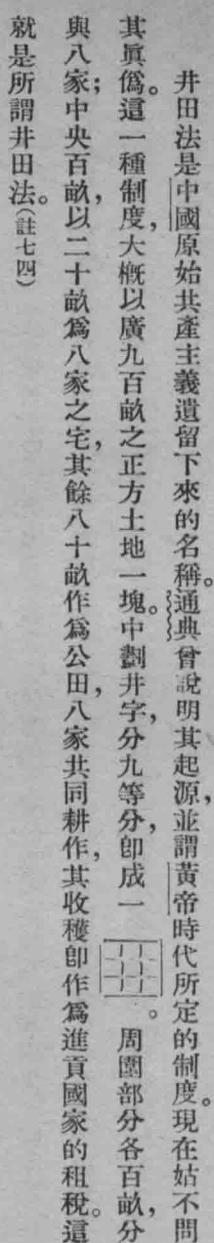 井田法是中國原始共產主義遺留下來的名稱。通典曾說明其起源，並謂黃帝時代所定的制度。現在姑不問
其眞僞。這一種制度，大槪以廣九百畝之正方土地一塊。中劃井字，分九等分，卽成一。周圍部分各百畝，分
與八家；中央百畝，以二十畝爲八家之宅，其餘八十畝作爲公田，八家共同耕作，其收穫卽作爲進貢國家的租稅。這
就是所謂井田法。（註七四）